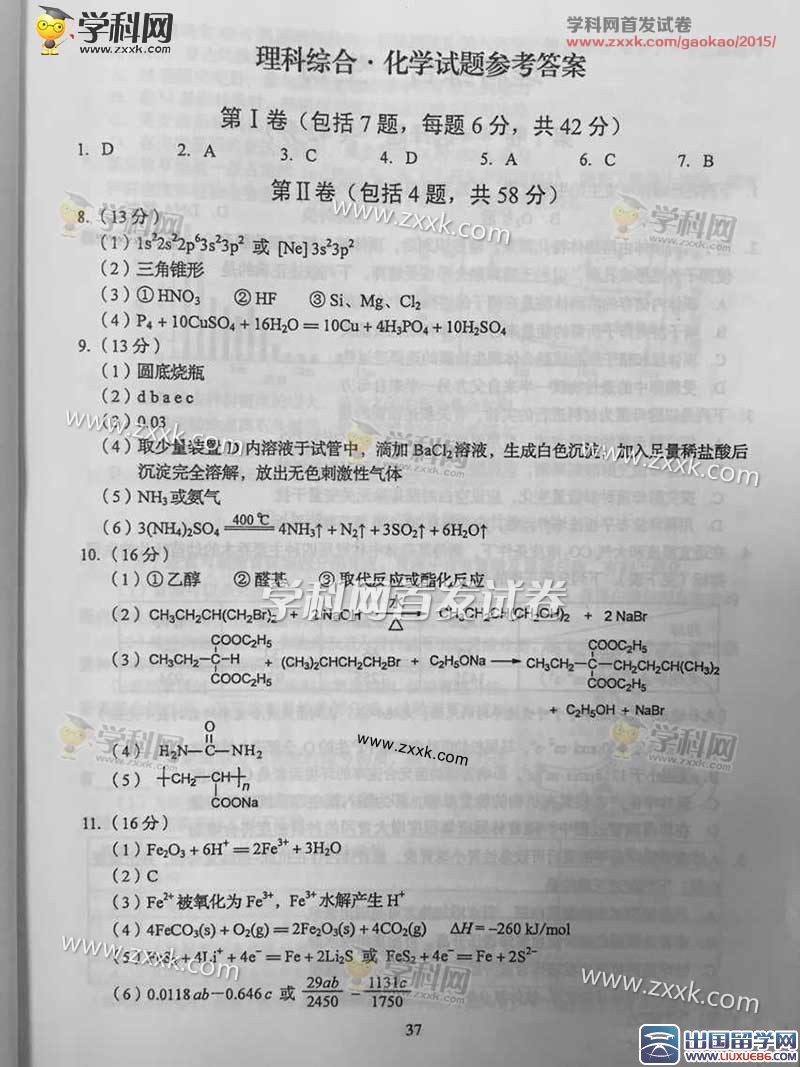 学科网
www.zxxk.com
学科网首发试卷
www.zxxk.com/gaokao/2015/
理科综合·化学试题参考答案
第Ⅰ卷（包括7题，每题6分，共42分）
1. D 2. A 3. C 4. D 5. A 6. C 7. B
第Ⅱ卷（包括4题，共58分）
8.（13分）
（1）1s²2s²2p⁶3s²3p² 或 [Ne]3s²3p²
（2）三角锥形
（3）①HNO₃ ②HF ③Si、Mg、Cl₂
（4）P₄ + 10CuSO₄ + 16H₂O = 10Cu + 4H₃PO₄ + 10H₂SO₄
9.（13分）
（1）圆底烧瓶
（2）d b a e c
（3）0.03
（4）取少量装置D内溶液于试管中，滴加BaCl₂溶液，生成白色沉淀，加入足量稀盐酸后
沉淀完全溶解，放出无色刺激性气体
（5）NH₃或氨气
（6）3(NH₄)₂SO₄ 400℃ 4NH₃↑ + N₂↑ + 3SO₂↑ + 6H₂O↑
10.（16分）
（1）①乙醇 ②醛基 ③取代反应或酯化反应
学科网首发试卷
（2）CH₃CH₂CH(CH₂Br)₂ + 2 NaOH △ CH₃CH₂CH(CH₂OH)₂ + 2 NaBr
COOC₂H₅ COOC₂H₅
（3）CH₃CH₂-C-H + (CH₃)₂CHCH₂CH₂Br + C₂H₅ONa → CH₃CH₂-C-CH₂CH₂CH(CH₃)₂
COOC₂H₅ COOC₂H₅
+ C₂H₅OH + NaBr
O
（4）H₂N-C-NH₂
www.zxxk.com
（5）[CH₂-CH]n
COONa
11.（16分）
（1）Fe₂O₃ + 6H⁺ = 2Fe³⁺ + 3H₂O
（2）C
（3）Fe²⁺被氧化为Fe³⁺，Fe³⁺水解产生H⁺
（4）4FeCO₃(s) + O₂(g) = 2Fe₂O₃(s) + 4CO₂(g) ΔH = -260 kJ/mol
（5）FeS₂ + 4Li⁺ + 4e⁻ = Fe + 2Li₂S 或 FeS₂ + 4e⁻ = Fe + 2S²⁻
（6）0.0118 ab - 0.646 c 或 29ab/2450 - 1131c/1750
www.zxxk.com
37
出国留学网
www.liuxue86.com